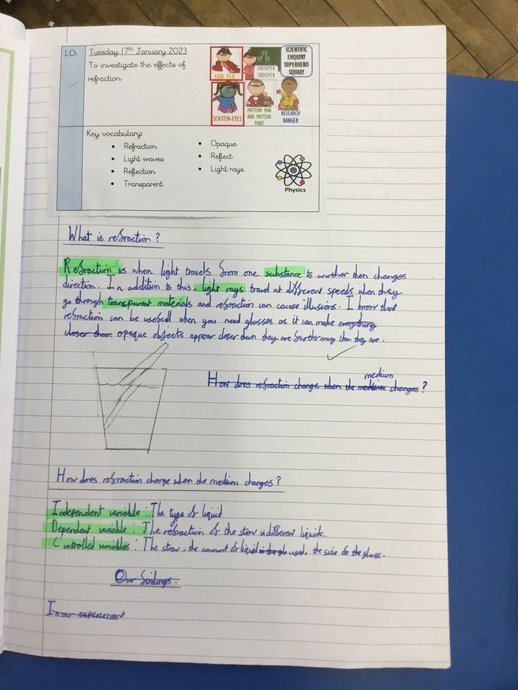 LO:
Tuesday 17th January 2023
To investigate the effects of
refraction
FAIR
GROUPER
TROOPER
SCIENTIFIC
ENQUIRY
SUPERHERO
SQUAD!
SCRUTIN-EYES
PATTERN PAN
AND PATTERN
PAWS
RESEARCH
RANGER
Key vocabulary:
• Refraction
• Light waves
• Reflection
• Transparent
• Opaque
• Reflect
• Light rays
Physics
What is refraction?
Refraction is when light travels from one substance to another then changes
direction. In addition to this, light rays travel at different speeds when they
go through transparent materials and refraction can cause illusions. I know that
refraction can be usefull when you need glasses as it can make everything
closer than opaque objects appear closer than they are further away than they are.
medium
How does refraction change when the medium changes?
How does refraction change when the medium changes?
Independent variable: The type of liquid
Dependent variable: The refraction of the straw in different liquids.
Controlled variables: The straw, the amount of liquid used, the size of the glass.
Our findings.
In our experiment